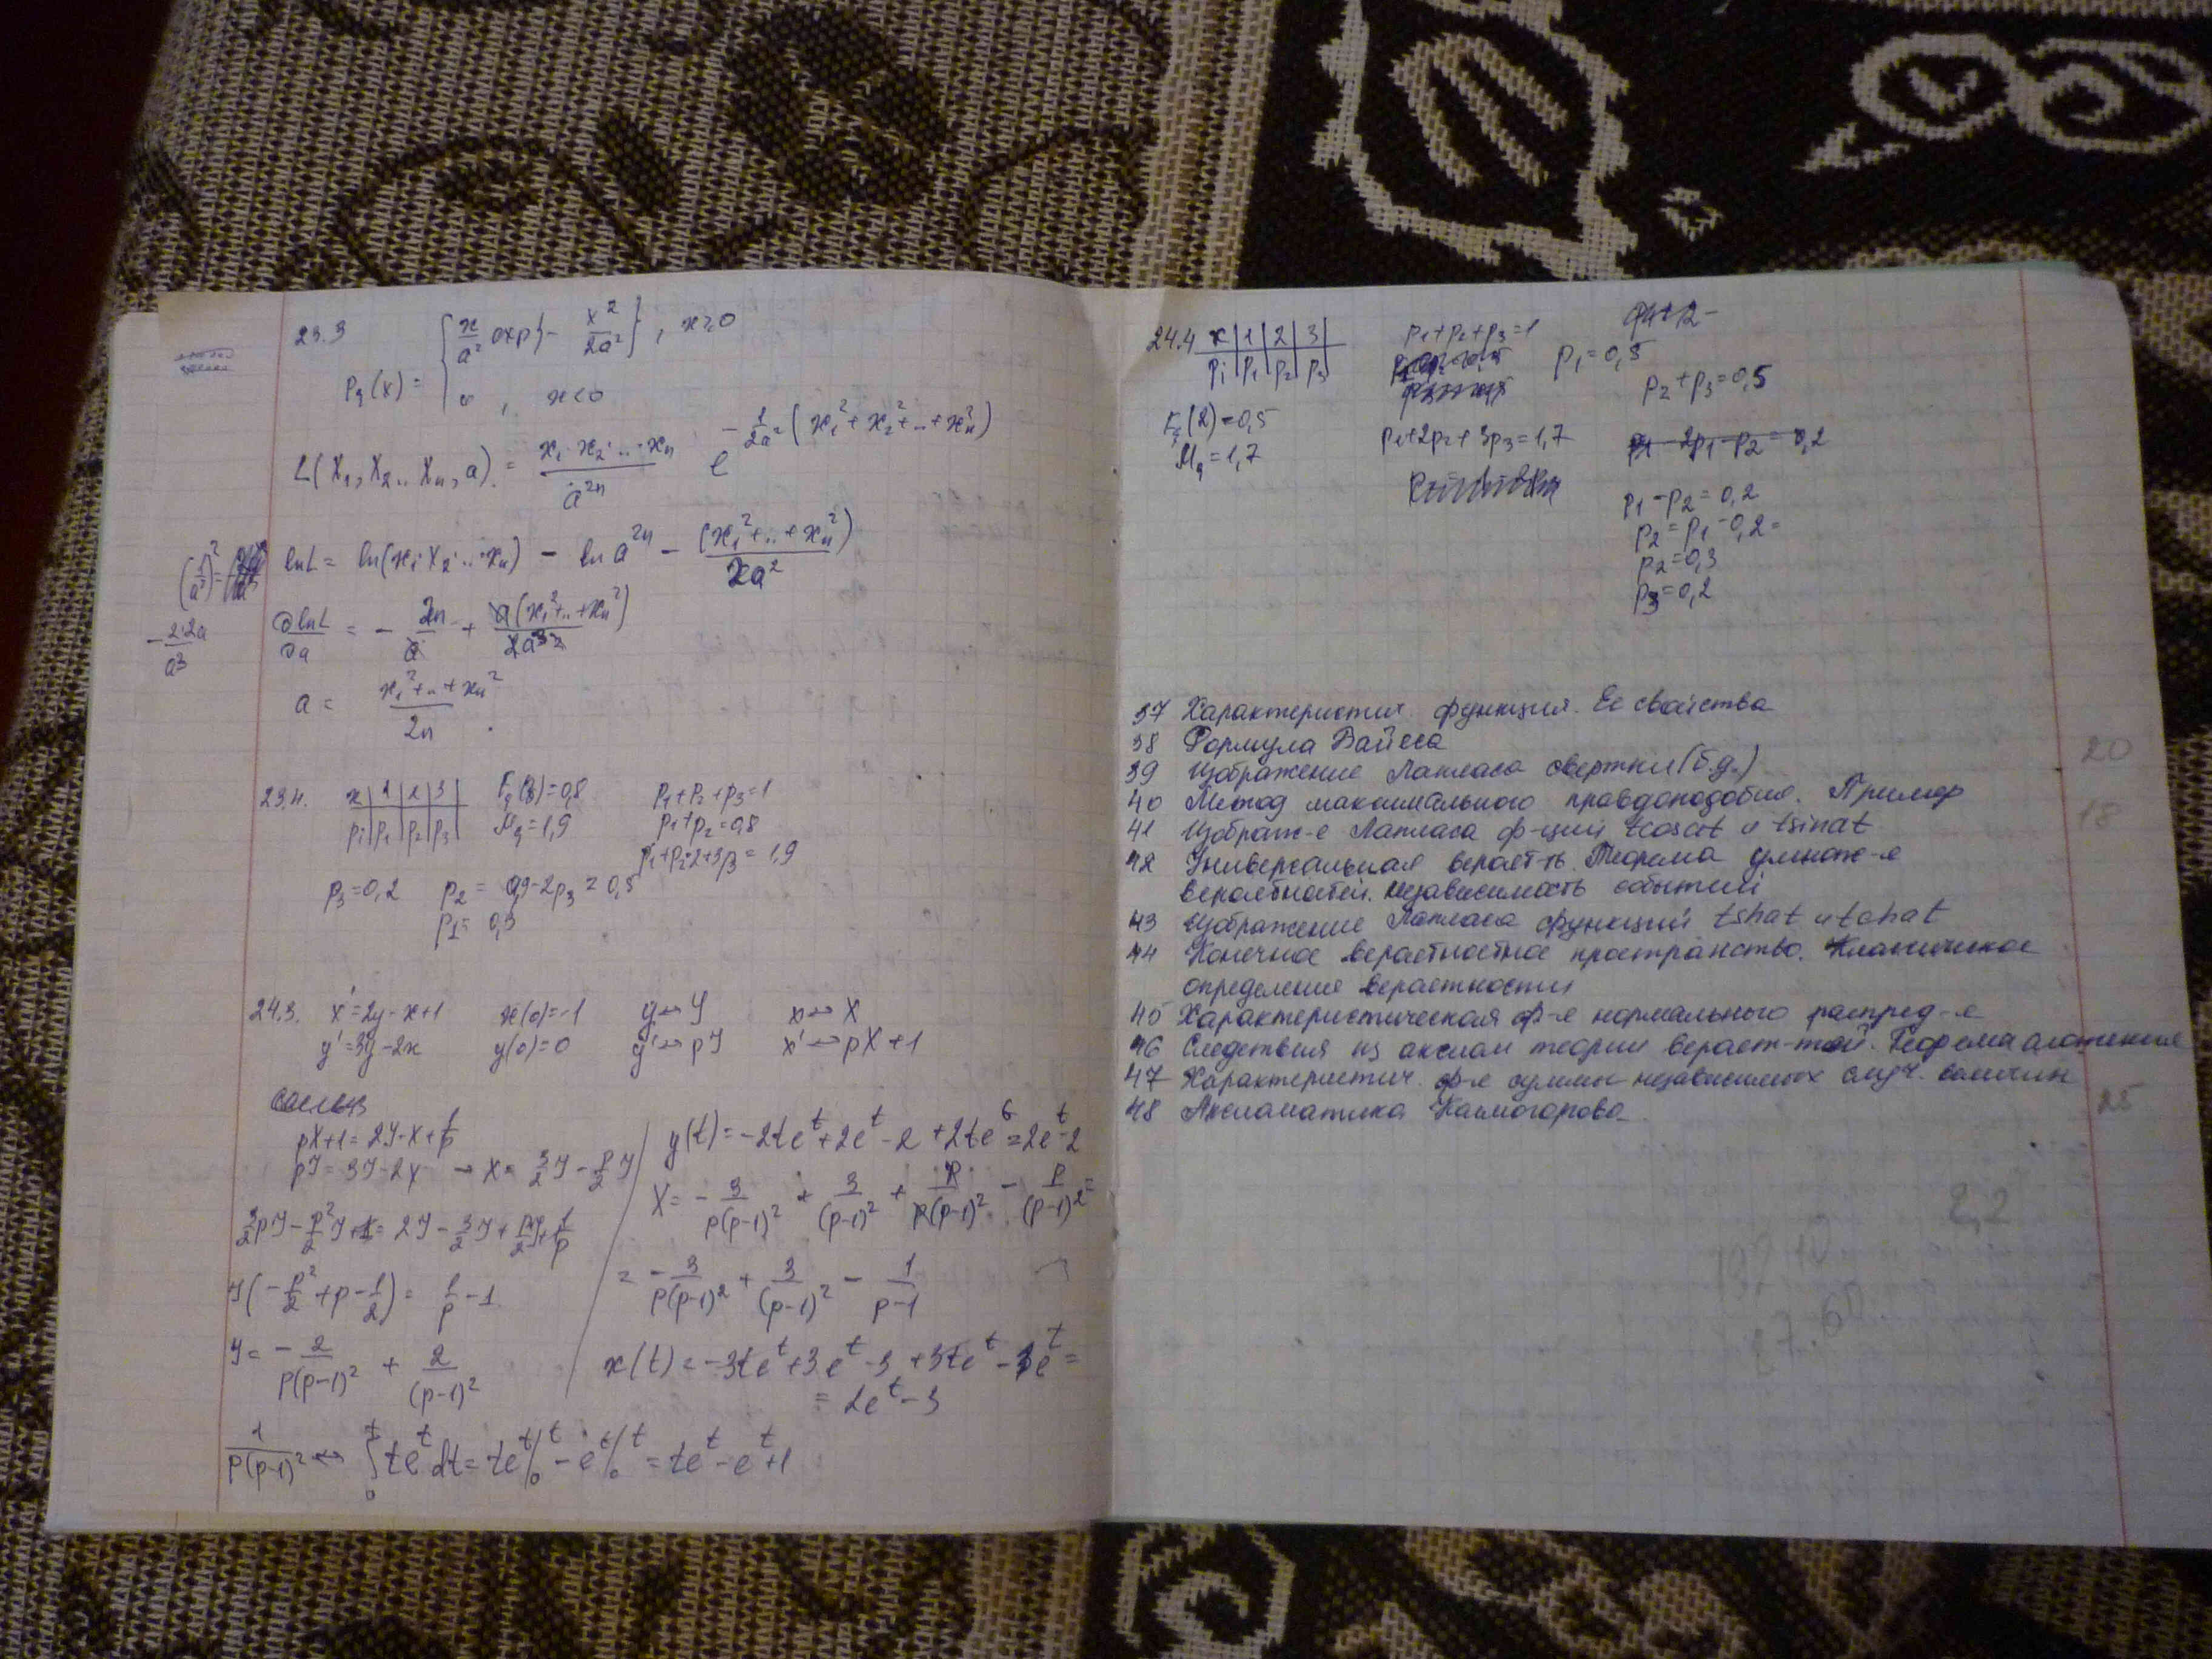 23.3
p_q(x) = { x/a² exp{- x²/2a²}, x≥0
0, x<0
L(x₁, x₂.. xₙ, a) = x₁·x₂·..·xₙ / a²ⁿ e^(-1/2a² (x₁²+x₂²+..+xₙ²))
lnL = ln(x₁·x₂·..·xₙ) - ln a²ⁿ - (x₁²+..+xₙ²) / 2a²
∂lnL/∂a = - 2n/a +
- 2·2a / a³
a = x₁²+..+xₙ² / 2n
23.4. x | 1 | 2 | 3 | F_q(3)=0,8 p₁+p₂+p₃=1
pi | p₁ | p₂ | p₃ M_q=1,9 p₁+p₂=0,8
p₁+p₂·2+3p₃=1,9
p₃=0,2 p₂= 0,9-2p₃=0,5
p₁= 0,3
24.3. x'=2y-x+1 x(0)=-1 y↔Y x↔X
y'=3y-2x y(0)=0 y'↔pY x'↔pX+1
pX+1=2Y-X+1/p
pY=3Y-2X → X= 3/2 Y - p/2 Y
3/2 pY - p²/2 Y+1= 2Y - 3/2 Y + p/2 Y+1/p
Y(-p²/2 + p - 1/2) = 1/p - 1
Y= - 2/p(p-1)² + 2/(p-1)²
1/p(p-1)² ↔ ∫₀ᵗ teᵗdt = teᵗ|₀ᵗ - eᵗ|₀ᵗ = teᵗ-eᵗ+1
y(t)=-2teᵗ+2eᵗ-2+2teᵗ=2eᵗ-2
X= - 3/p(p-1)² + 3/(p-1)² + p/p(p-1)² - p/(p-1)² =
= - 3/p(p-1)² + 3/(p-1)² - 1/p-1
x(t)=-3teᵗ+3eᵗ-3+3teᵗ-eᵗ=
= 2eᵗ-3
24.4 x | 1 | 2 | 3 | p₁+p₂+p₃=1
pi | p₁ | p₂ | p₃ p₁=0,5
p₂+p₃=0,5
F_q(2)=0,5
M_q=1,7
p₁+2p₂+3p₃=1,7
p₁-p₂=0,2
p₂=p₁-0,2=
p₂=0,3
p₃=0,2
37 Характеристич. функция. Ее свойства
38 Формула Байеса
39 Изображение Лапласа свертки (б.д.)
40 Метод максимального правдоподобия. Пример
41 Изображ-е Лапласа ф-ций tcosat и tsinat
42 Универсальная вероят-ть. Теорема умнож-я
вероятностей. независимость событий
43 Изображение Лапласа функций tshat и tchat
44 Конечное вероятностное пространство. Классическое
определение вероятности
45 Характеристическая ф-я нормального распред-я
46 Следствия из аксиом теории вероят-тей. Теорема сложения
47 Характеристич. ф-я суммы независимых случ. величин
48 Аксиоматика Колмогорова
20
18
25
2,2